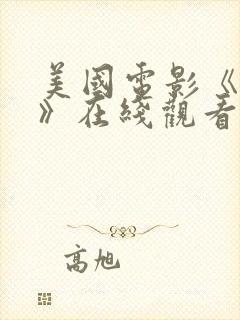 美國電影《
》在綫觀看
高旭